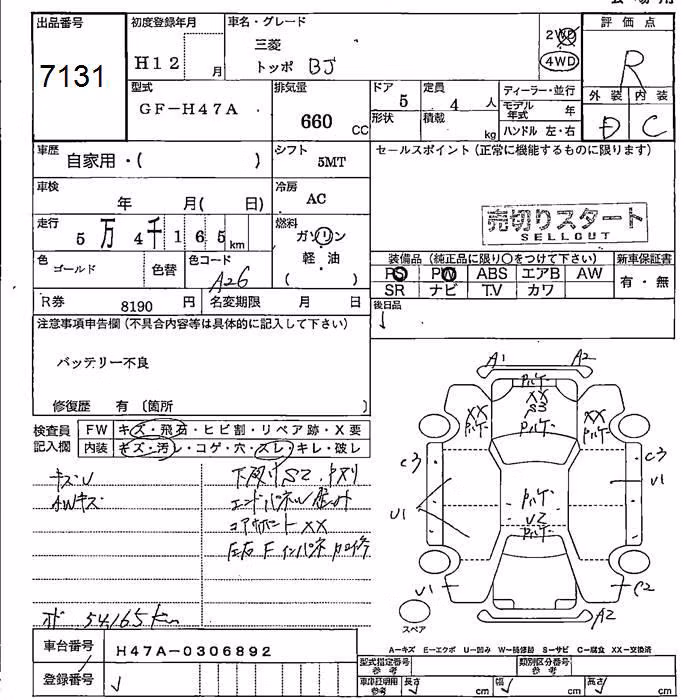 出品番号
7131
初度登録年月
H12
月
車名・グレード
三菱
トッポ BJ
2WD
4WD
評価点
R
外装
内装
D
C
型式
GF-H47A
排気量
660
CC
ドア
5
形状
定員
4
人
積載
kg
ディーラー・並行
モデル年式
年
ハンドル 左・右
車歴
自家用・( )
シフト
5MT
セールスポイント (正常に機能するものに限ります)
車検
年 月( 日)
冷房
AC
走行
5万4千165
km
燃料
ガソリン
軽・油
( )
売切りスタート
SELLOUT
色
ゴールド
色替
色コード
A26
装備品 (純正品に限り○をつけて下さい)
PS
PW
ABS
エアB
AW
SR
ナビ
T.V
カワ
新車保証書
有・無
R券
8190
円
名変期限
月 日
後日品
注意事項申告欄 (不具合内容等は具体的に記入して下さい)
バッテリー不良
修復歴 有 〔箇所 〕
検査員
記入欄
FW
キズ・飛石・ヒビ割・リペア跡・X要
内装
キズ・汚レ・コゲ・穴・スレ・キレ・破レ
キズU
AWキズ
下廻りS2
コアサポートXX
左右Fインパネ
54165km
A1
A2
XX
S3
XX
XX
C3
C3
U1
U1
U2
U1
C2
A2
スペア
A-キズ E-エクボ U-凹み W-補修跡 S-サビ C-腐食 XX-交換済
車台番号
H47A-0306892
登録番号
型式指定番号
参考
類別区分番号
参考
車庫証明用
参考
長さ
cm
幅
cm
高さ
cm